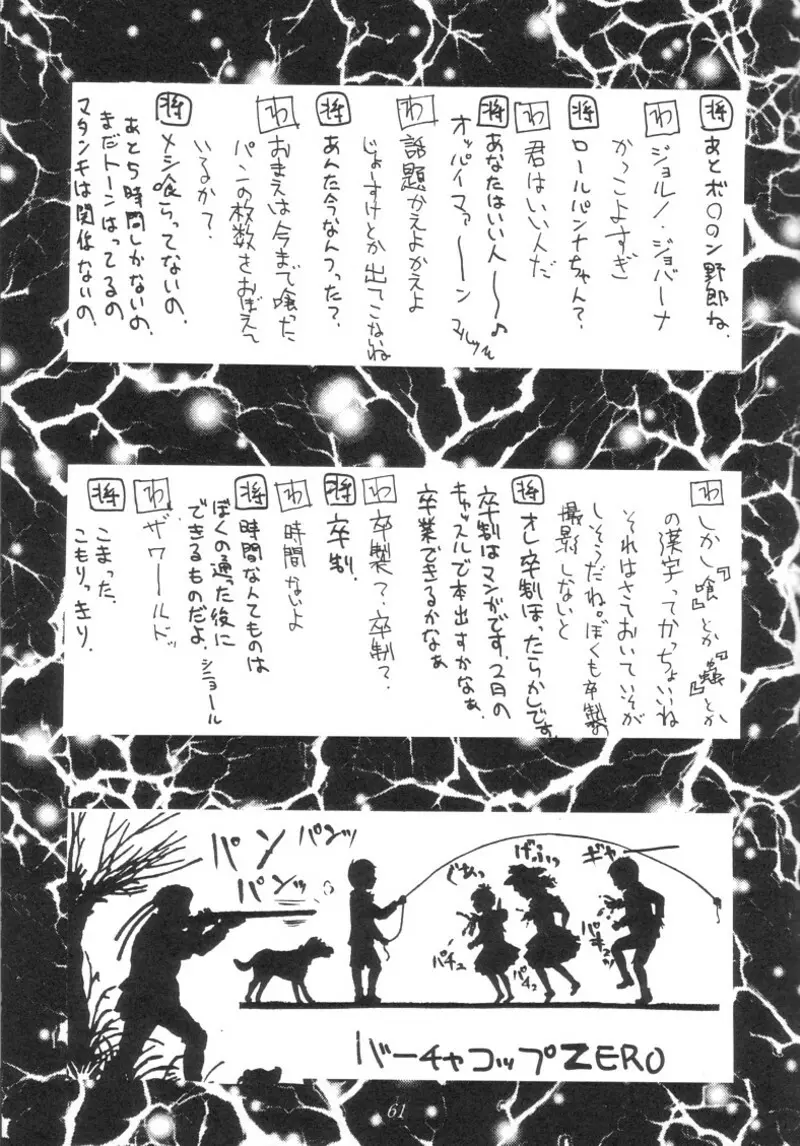 将 あとボ○○ン野郎ね。
わ ジョルノ・ジョバーナ
かっこよすぎ
将 ロールパンナちゃん?
わ 君はいい人だ
将 あなたはいい人〜〜♪
オッパイマァ〜〜ン
わ 話題かえよかえよ
じょーすけとか出てこないね
将 あんた今なんつった?
わ おまえは今まで喰った
パンの枚数をおぼえて
いるか?
将 メシ喰らってないの。
あと5時間しかないの。
まだトーンはってるの
マタンキは関係ないの。
わ しかし『喰』とか『蟲』とか
の漢字ってかっちょいいね
それはさておいていそが
しそうだね。ぼくも卒製の
撮影しないと
将 オレ卒制ほったらかしです。
卒制はマンガです。2日の
キャッスルで本出すかなぁ。
卒業できるかなぁ
わ 卒製?卒制?
将 卒制。
わ 時間ないよ
将 時間なんてものは
ぼくの通った後に
できるものだよ。ショール
わ ザワールドッ
将 こまった。
こもりっきり。
パン パンッ
パンッ
ぐあっ
げふっ
ギャー
パチュ
パチュ
パチュッ
バーチャコップZERO
61